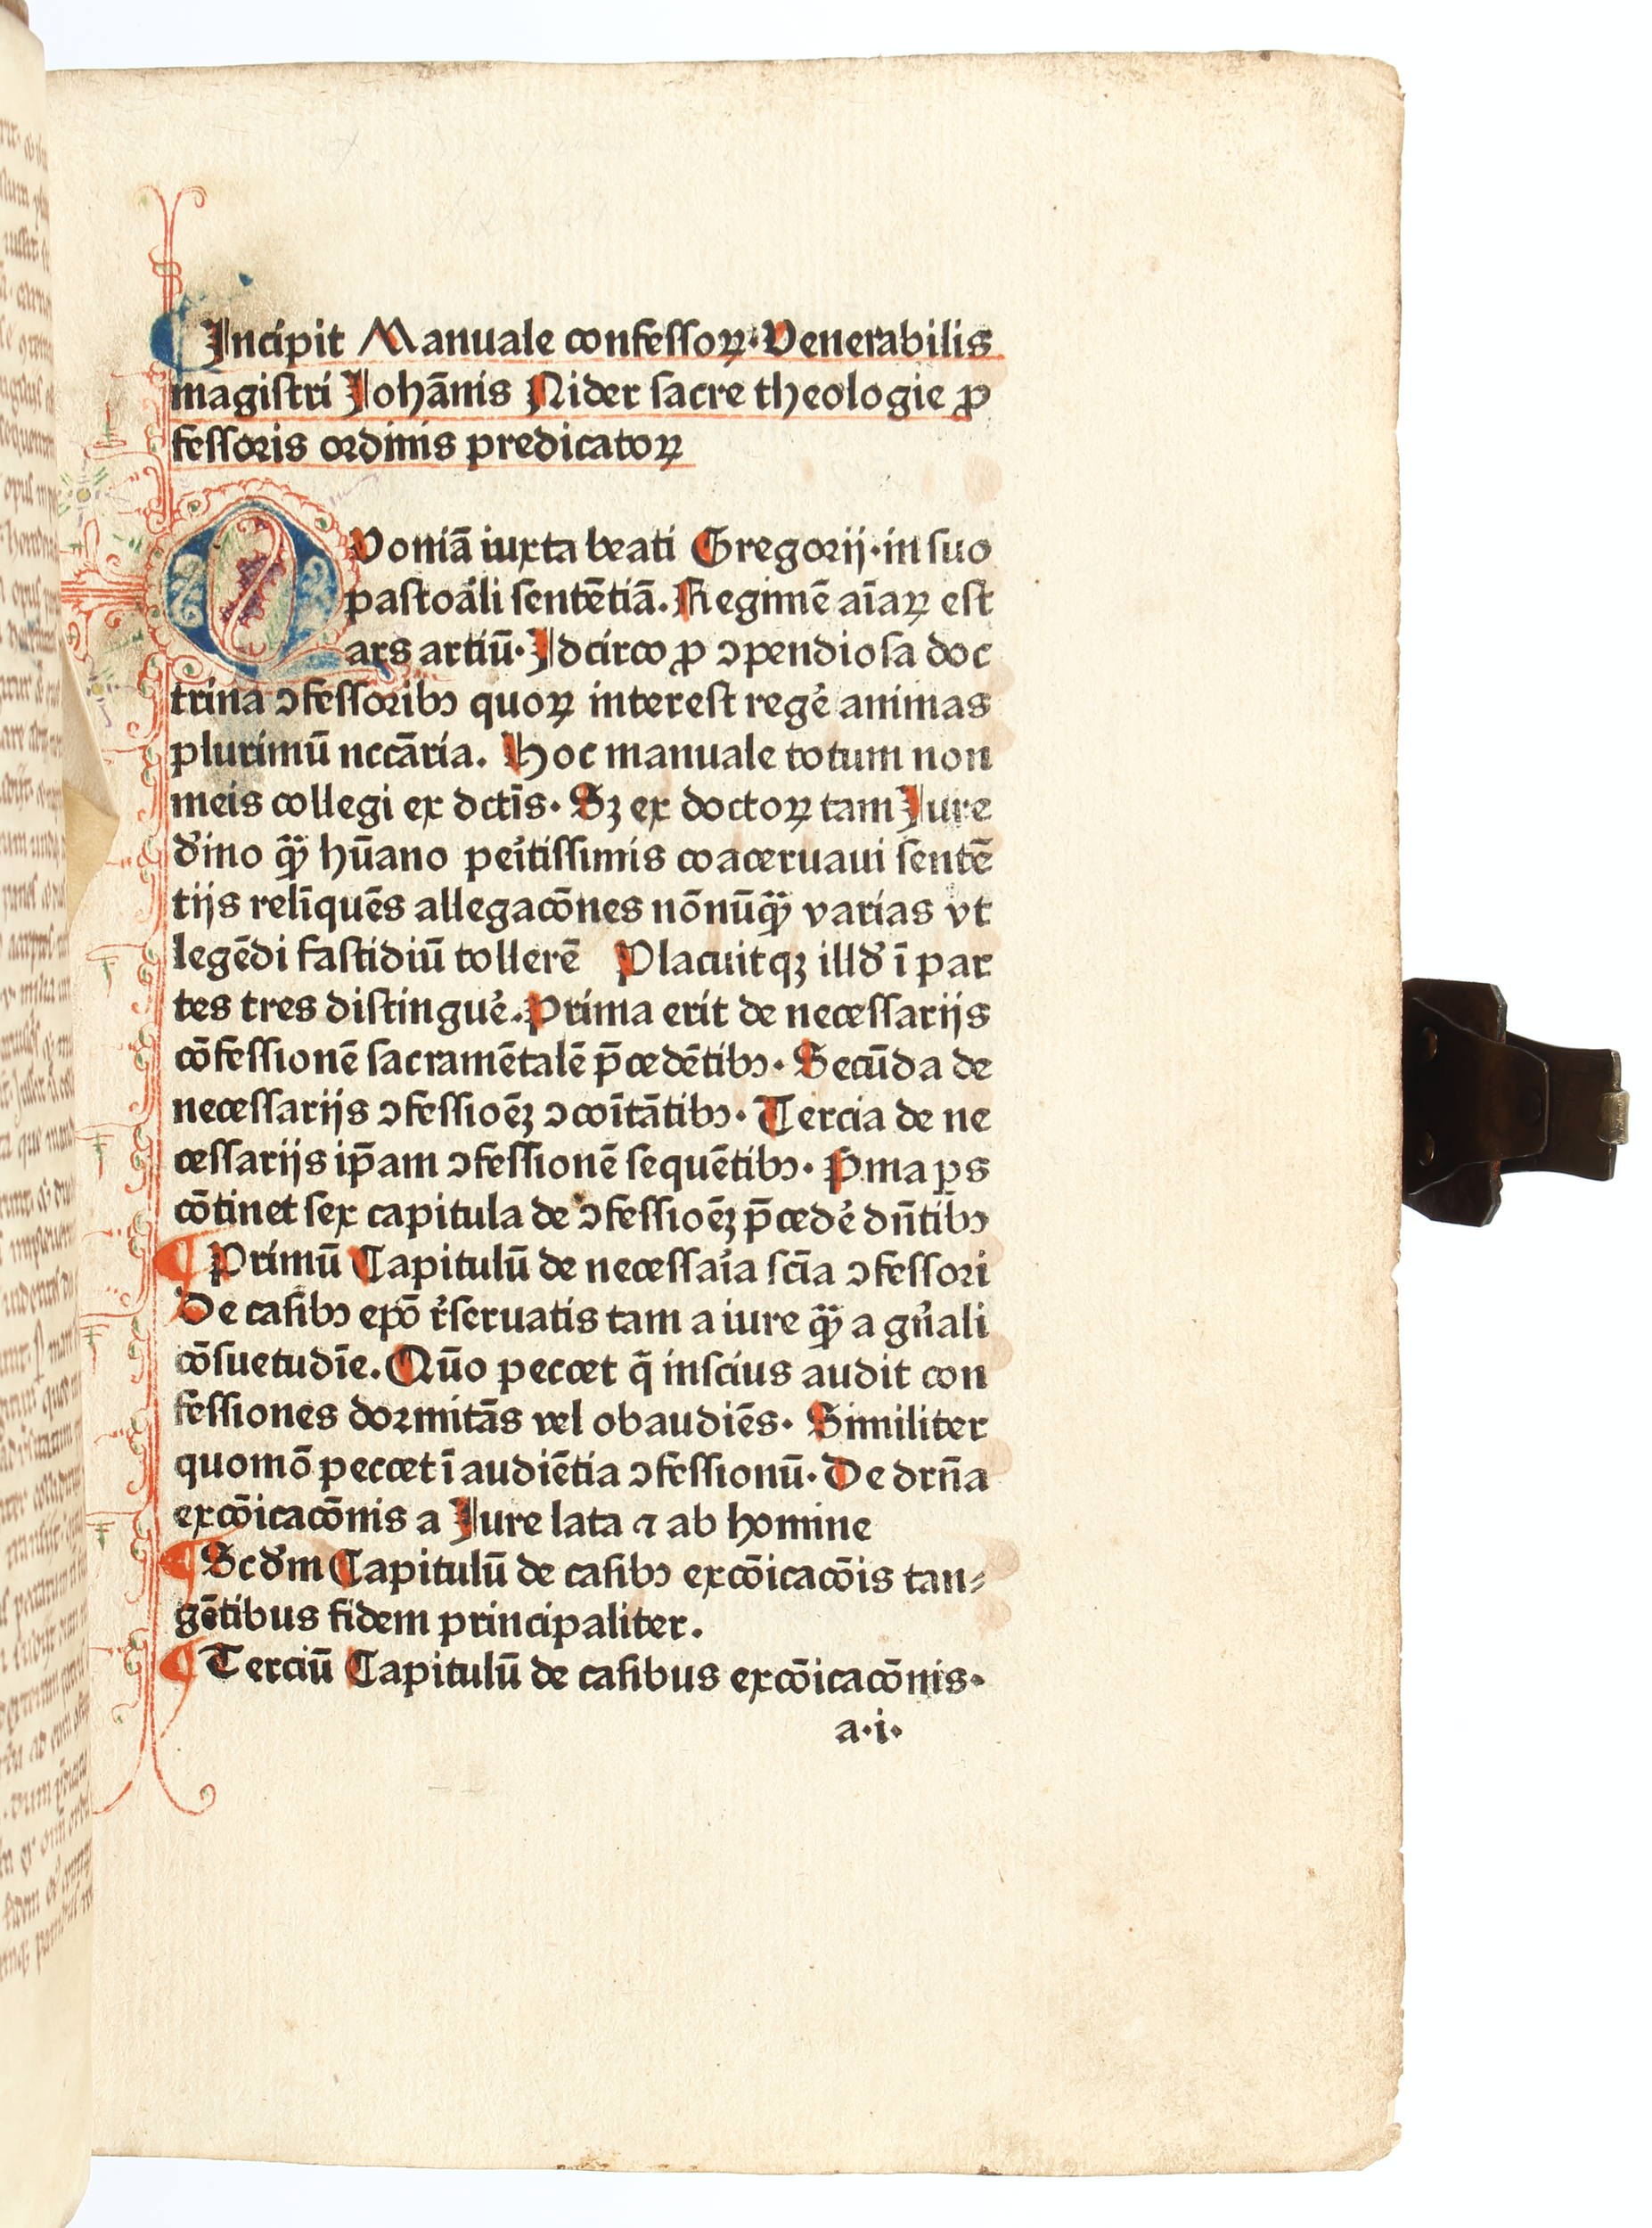 ¶ Incipit Manuale confessoꝝ·Venerabilis
magistri Johānis Nider sacre theologie ꝓ
fessoris ordinis predicatoꝝ
QVoniā iuxta beati Gregorij·in suo
pastoăli sentētiā. Regimē aīaꝝ est
ars artiū·Idcirco ꝓ ɔpendiosa doc
trina ɔfessoribꝰ quoꝝ interest regẻ animas
plurimū nccāria. Hoc manuale totum non
meis collegi ex dctīs· Sꝫ ex doctoꝝ tam Jure
d͛ino qᷓꝫ hūano peͥtissimis coaceruaui sentē
tijs relīquēs allegacōnes nōnūqᷓꝫ varias vt
legēdi fastidiū tollerē Placuitqꝫ illd͛ ī par
tes tres distinguẻ. Prima erit de necessarijs
cōfessionē sacramētalē p̄cedētibꝰ· Secūda de
necessarijs ɔfessioēꝫ ɔcoītātibꝰ· Tercia de ne
cessarijs ip̄am ɔfessionē sequētibꝰ· Pͥma ꝑs
cōtinet sex capitula de ɔfessioēꝫ p̄cedẻ dn̄tibꝰ
¶ Primū Capitulū de necessaͥia scīa ɔfessori
De casibꝰ epō r͛seruatis tam a iure qᷓꝫ a gn̉ali
cōsuetudīe. Quō peccet q̄ inscius audit con
fessiones dormitās vel obaudiēs· Similiter
quomō peccet ī audiētia ɔfessionū· De drn̄a
excōicacōnis a Jure lata ⁊ ab homine
¶ Scd͛m Capitulū de casibꝰ excōicacōis tan⸗
gētibus fidem principaliter.
¶ Terciū Capitulū de casibus excōicacōnis·
a·i·